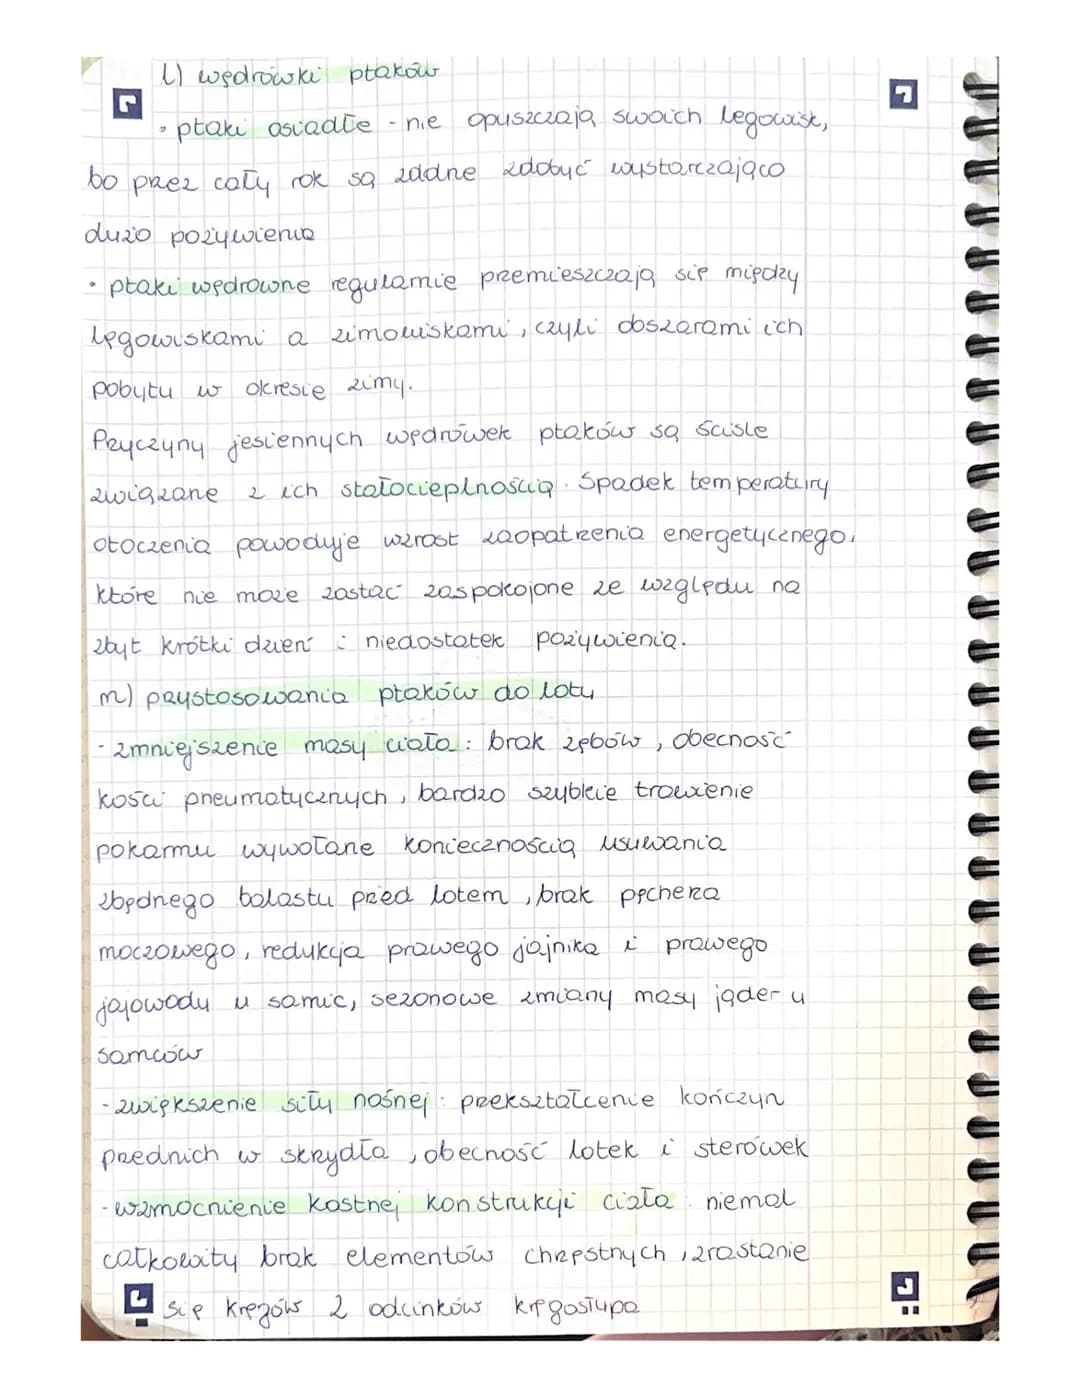 l) wędrówki ptaków
• ptaki osiadłe - nie opuszczają swoich legowisk,
bo przez cały rok są zdolne zdobyć wystarczająco
dużo pożywienia
• ptaki wędrowne regularnie przemieszczają się między
lęgowiskami a zimowiskami, czyli obszarami ich
pobytu w okresie zimy.
Przyczyny jesiennych wędrówek ptaków są ściśle
związane z ich stałocieplnością. Spadek temperatury
otoczenia powoduje wzrost zaopatrzenia energetycznego,
które nie może zostać zaspokojone ze względu na
zbyt krótki dzień i niedostatek pożywienia.
m) przystosowania ptaków do lotu
- zmniejszenie masy ciała: brak zębów, obecność
kości pneumatycznych, bardzo szybkie trawienie
pokarmu wywołane koniecznością usuwania
zbędnego balastu przed lotem, brak pęcherza
moczowego, redukcja prawego jajnika i prawego
jajowodu u samic, sezonowe zmiany masy jąder u
samców
- zwiększenie siły nośnej: przekształcenie kończyn
przednich w skrzydła, obecność lotek i sterówek
- wzmocnienie kostnej konstrukcji ciała: niemal
całkowity brak elementów chrzęstnych, zrastanie
się kręgów z odcinków kręgosłupa